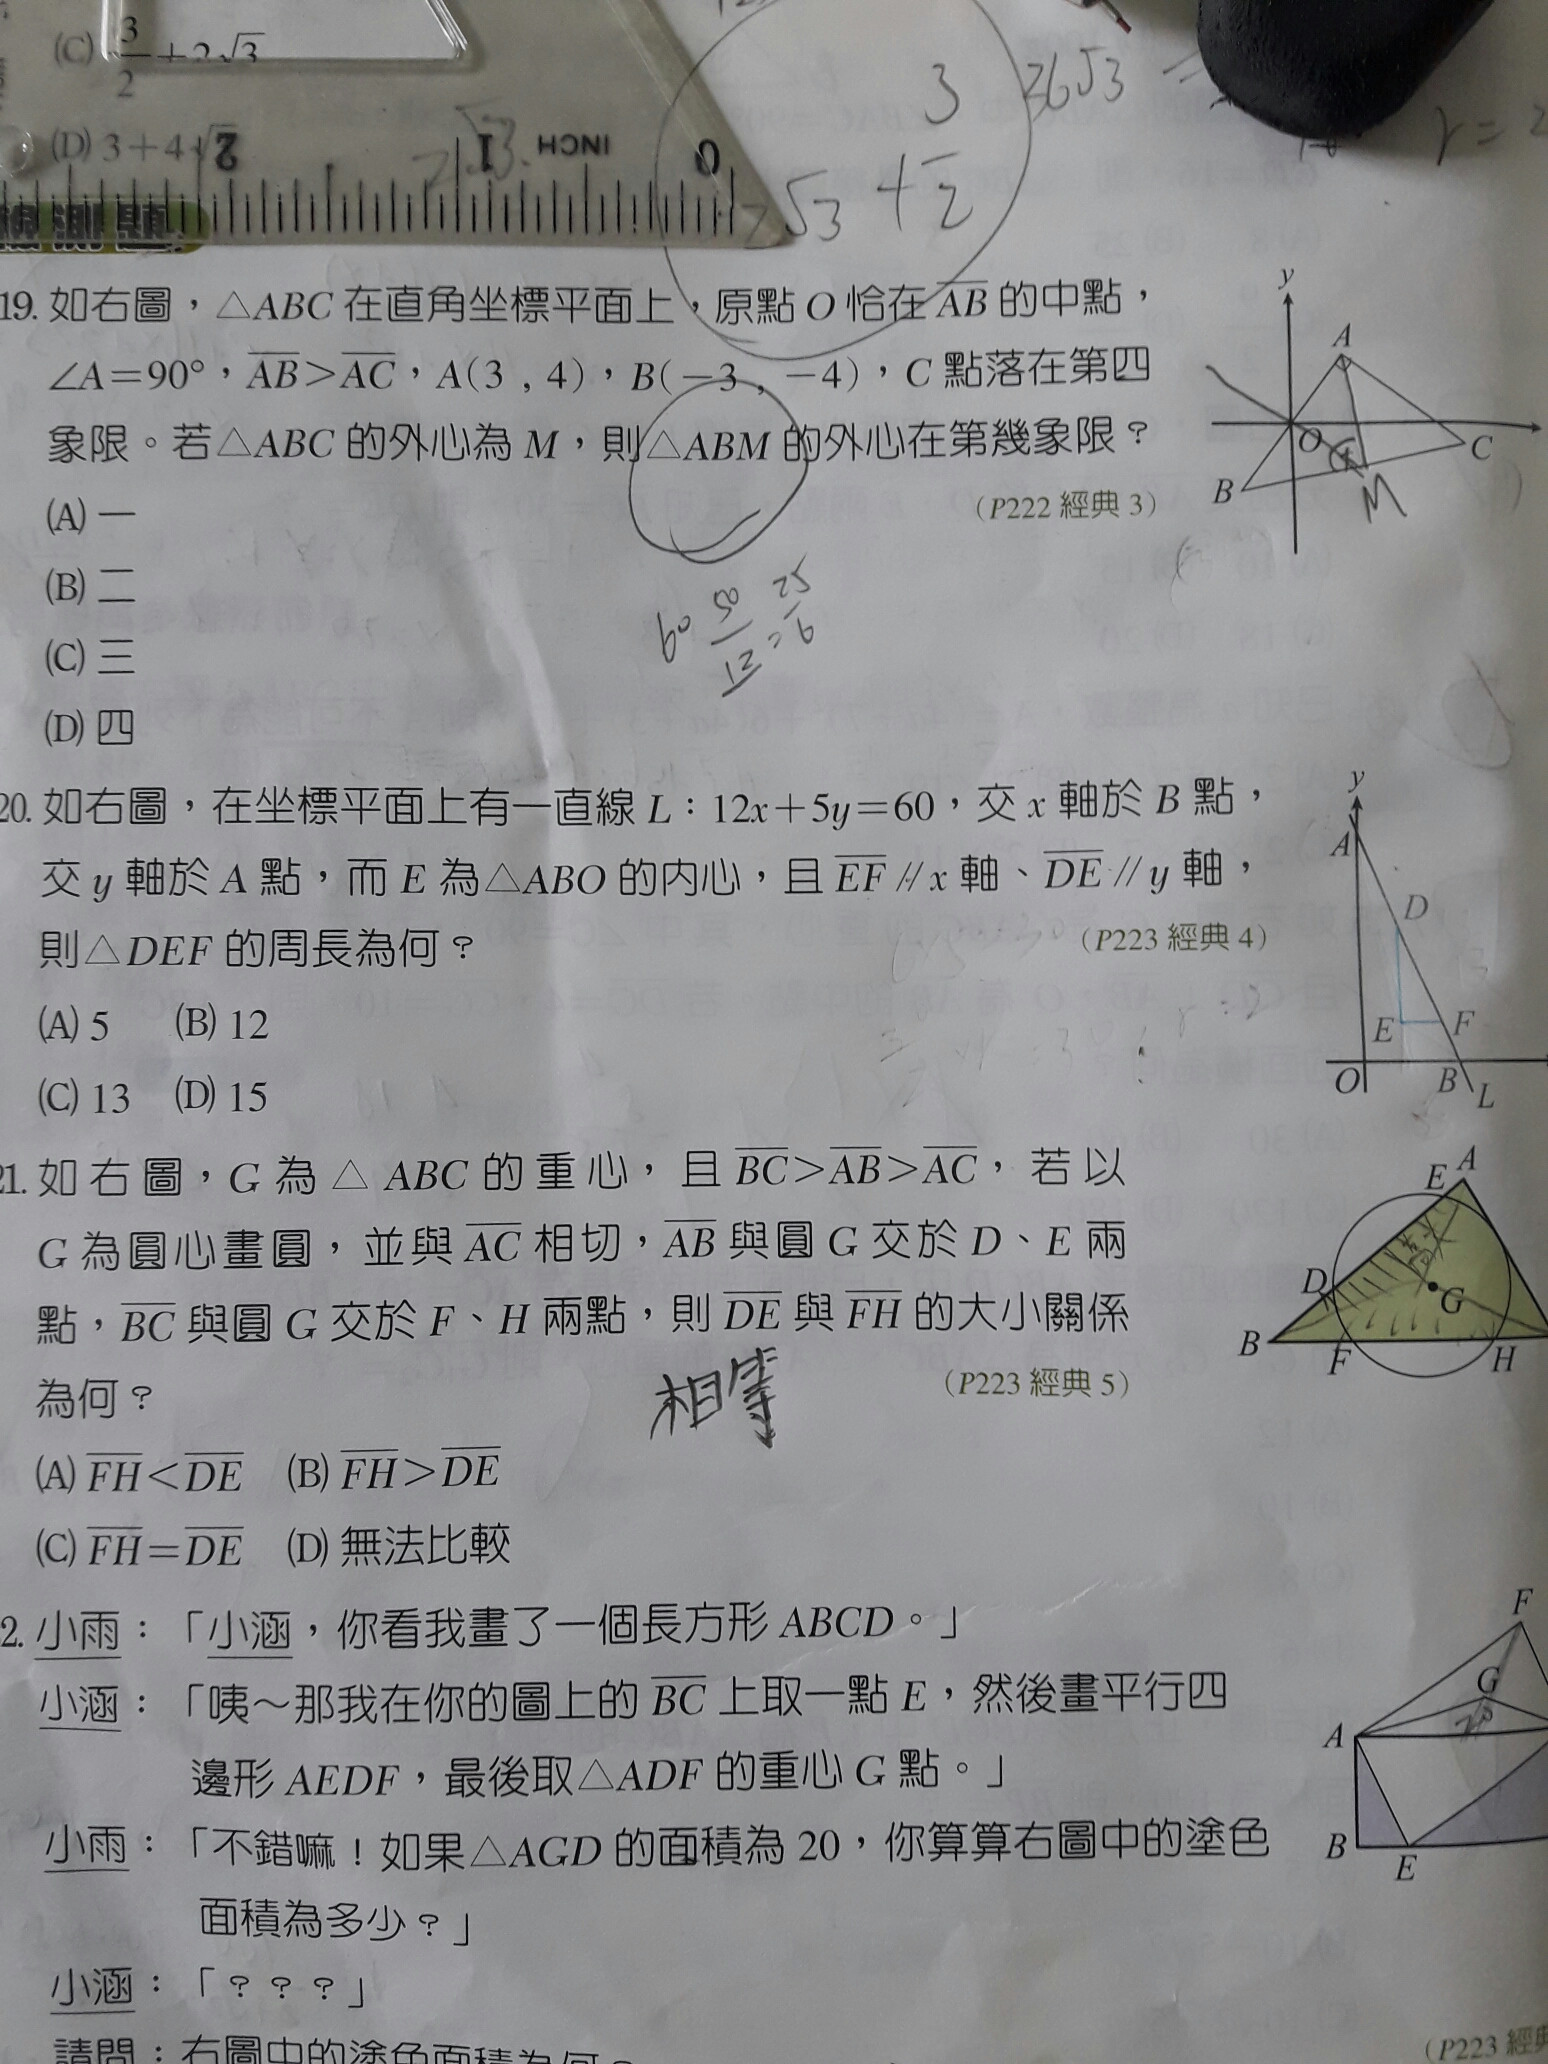 (C) 3/2+2√3
(D) 3+4√2
INCH 1 0
2√3+3/2
36√3
19. 如右圖，△ABC 在直角坐標平面上，原點 O 恰在 AB 的中點，
∠A=90°，AB>AC，A(3 , 4)，B(−3 , −4)，C 點落在第四
象限。若△ABC 的外心為 M，則△ABM 的外心在第幾象限？
(P222 經典 3)
(A) 一
(B) 二
(C) 三
(D) 四
y A O B C M
60 50/12=25/6
20. 如右圖，在坐標平面上有一直線 L：12x+5y=60，交 x 軸於 B 點，
交 y 軸於 A 點，而 E 為△ABO 的內心，且 EF // x 軸、DE // y 軸，
則△DEF 的周長為何？
(P223 經典 4)
(A) 5 (B) 12
(C) 13 (D) 15
y A D E F O B L
21. 如右圖，G 為△ABC 的重心，且 BC>AB>AC，若以
G 為圓心畫圓，並與 AC 相切，AB 與圓 G 交於 D、E 兩
點，BC 與圓 G 交於 F、H 兩點，則 DE 與 FH 的大小關係
為何？
(P223 經典 5)
相等
(A) FH<DE (B) FH>DE
(C) FH=DE (D) 無法比較
E A D G B F H
2. 小雨：「小涵，你看我畫了一個長方形 ABCD。」
小涵：「咦～那我在你的圖上的 BC 上取一點 E，然後畫平行四
邊形 AEDF，最後取△ADF 的重心 G 點。」
小雨：「不錯嘛！如果△AGD 的面積為 20，你算算右圖中的塗色
面積為多少？」
小涵：「？？？」
請問：右圖中的塗色面積為何？
(P223 經典
F G A B E